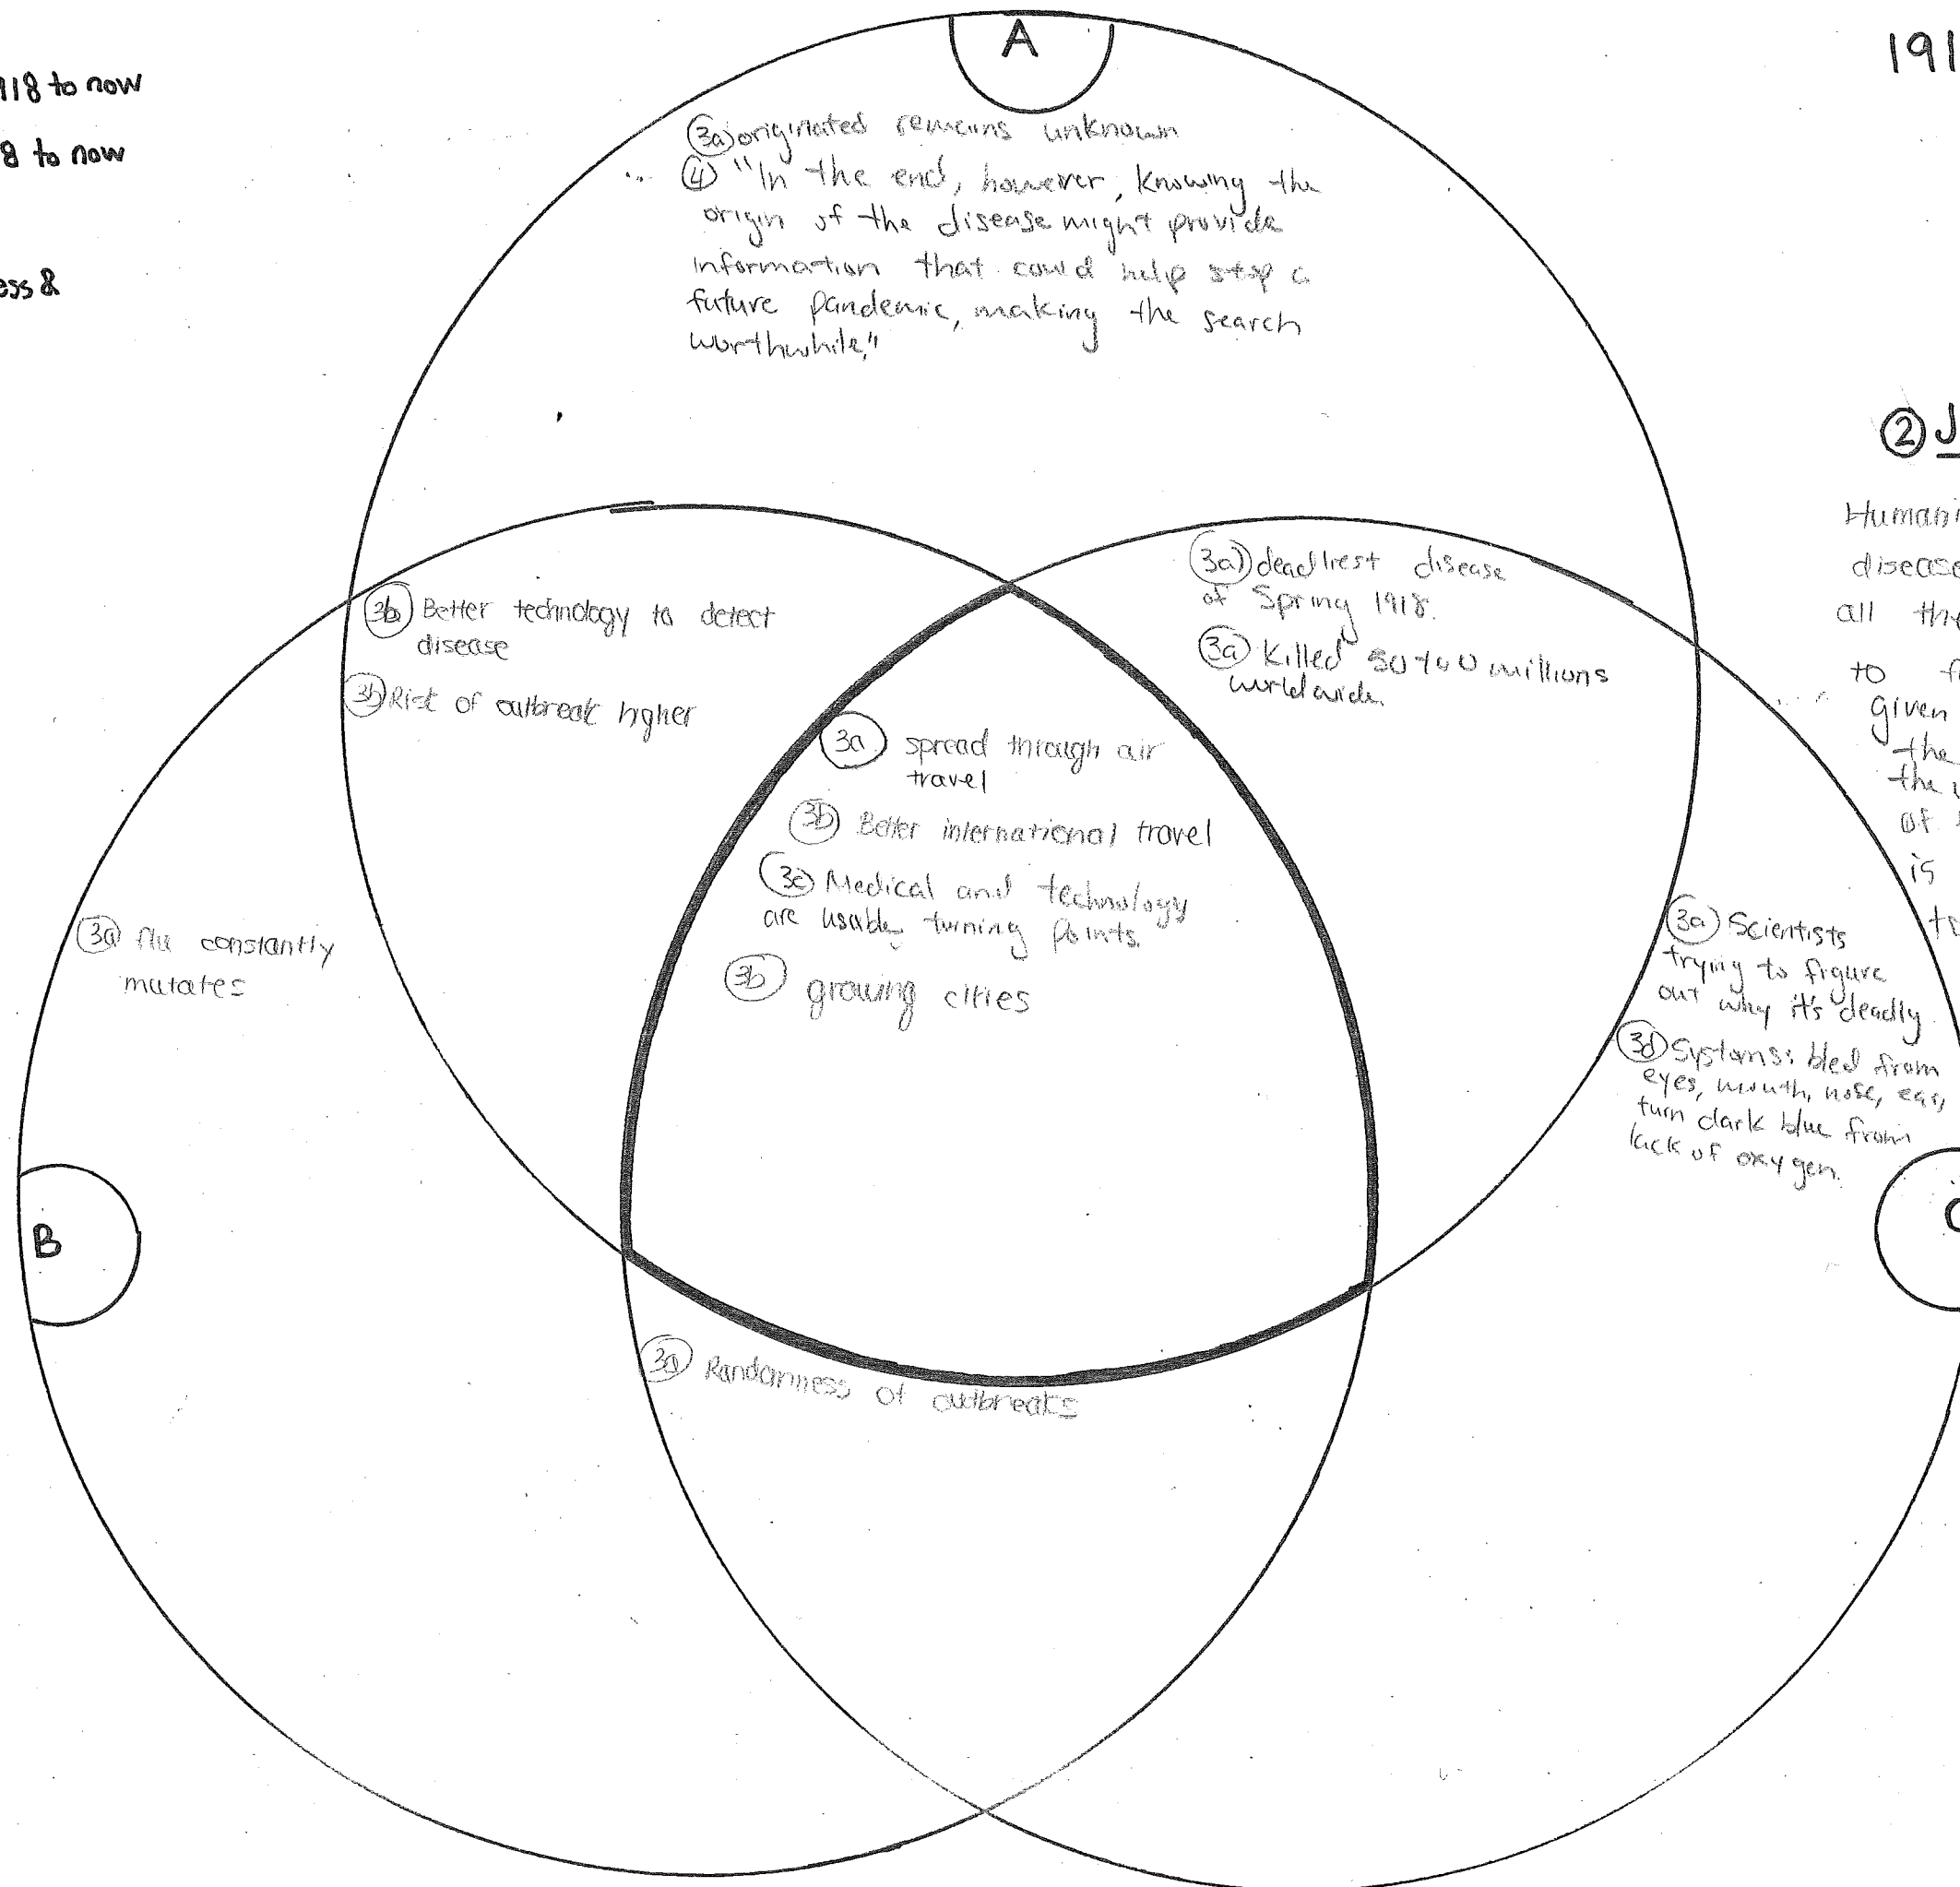 118 to now
8 to now
ess &
A
191
(3a) originated remains unknown
(4) "In the end, however, knowing the
origin of the disease might provide
information that could help stop a
future pandemic, making the search
worthwhile."
(2) J
Humani
disease
all the
to f
given
the
the
of
is
to
(3b) Better technology to detect
disease
(3b) Risk of outbreak higher
(3a) deadliest disease
of Spring 1918.
(3a) killed 50 to millions
worldwide.
(3a) spread through air
travel
(3b) Better international travel
(3c) Medical and technology
are usable turning points.
(3b) growing cities
(3a) flu constantly
mutates
(3a) Scientists
trying to figure
out why it's deadly
(3d) Systoms: bled from
eyes, mouth, nose, ears,
turn dark blue from
lack of oxygen.
B
C
(3a) Randomness of outbreaks